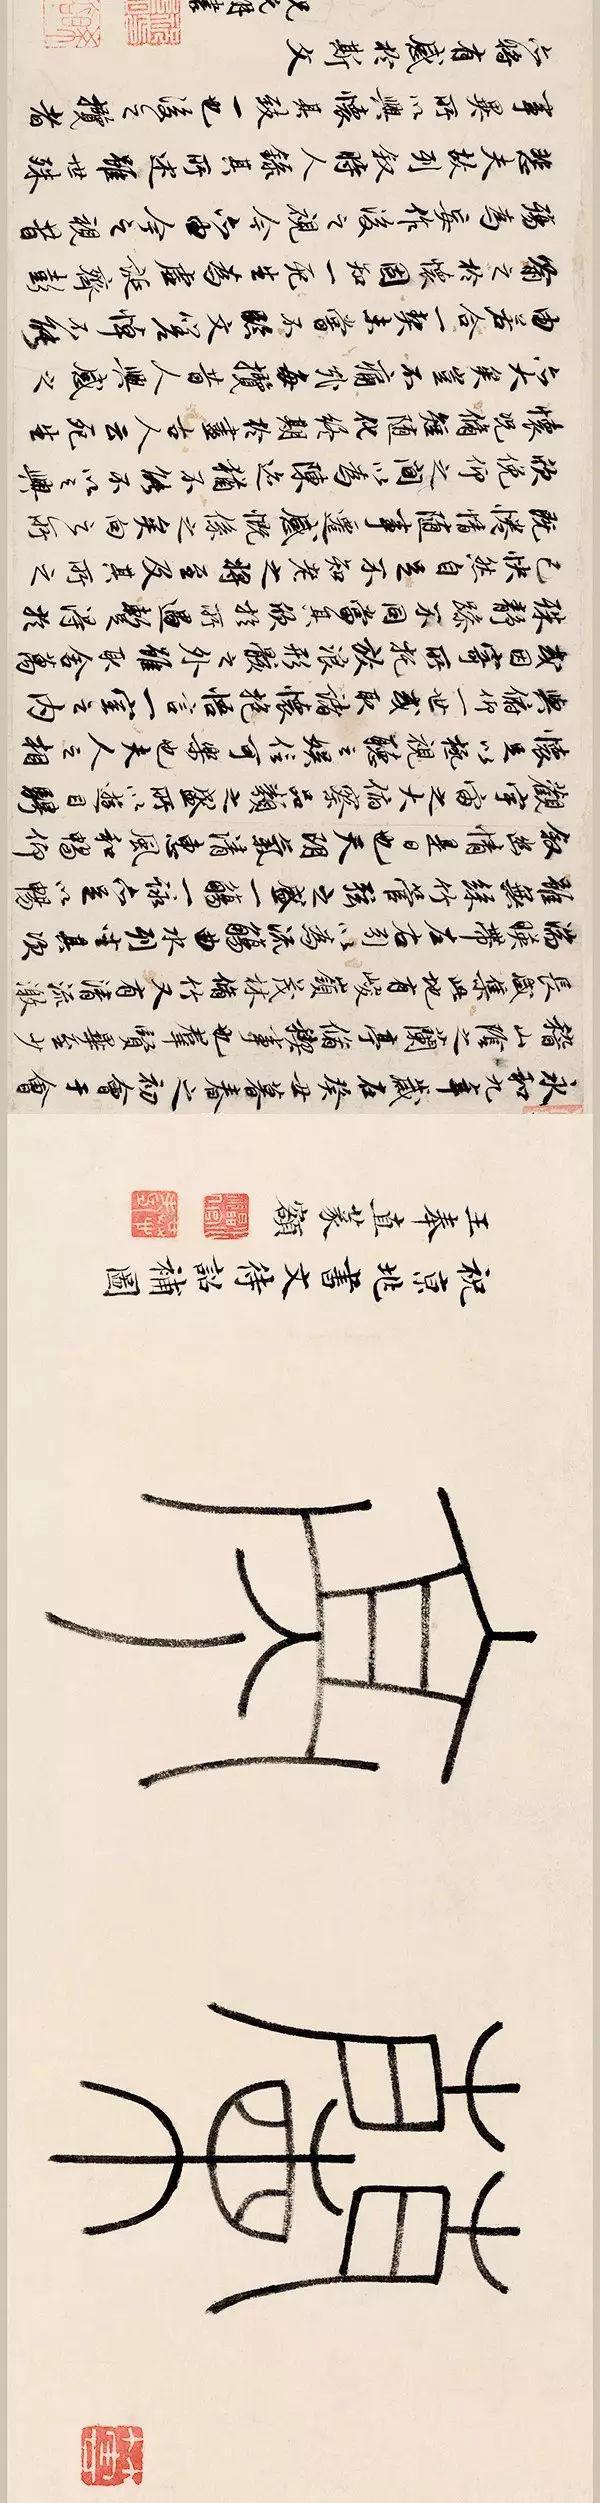 蘭亭
祝京兆書文待詔補圖
王奉直篆額
永和九年歲在癸丑暮春之初會于會
稽山陰之蘭亭脩禊事也羣賢畢至少
長咸集此地有峻嶺茂林脩竹又有清流激
湍暎帶左右引以為流觴曲水列坐其次
雖無絲竹管弦之盛一觴一詠亦足以暢
敘幽情是日也天朗氣清惠風和暢仰
觀宇宙之大俯察品類之盛所以遊目騁
懷足以極視聽之娛信可樂也夫人之相
與俯仰一世或取諸懷抱悟言一室之內
或因寄所託放浪形骸之外雖取舍萬
殊靜躁不同當其欣於所遇暫得於
己快然自足不知老之將至及其所之
既惓情隨事遷感慨係之矣向之所
欣俛仰之間以為陳迹猶不能不以之興
懷況脩短隨化終期於盡古人云死生
亦大矣豈不痛哉每攬昔人興感之
由若合一契未嘗不臨文嗟悼不能
喻之於懷固知一死生為虛誕齊彭
殤為妄作後之視今亦由今之視昔
悲夫故列敘時人錄其所述雖世殊
事異所以興懷其致一也後之攬者
亦將有感於斯文
祝允明書